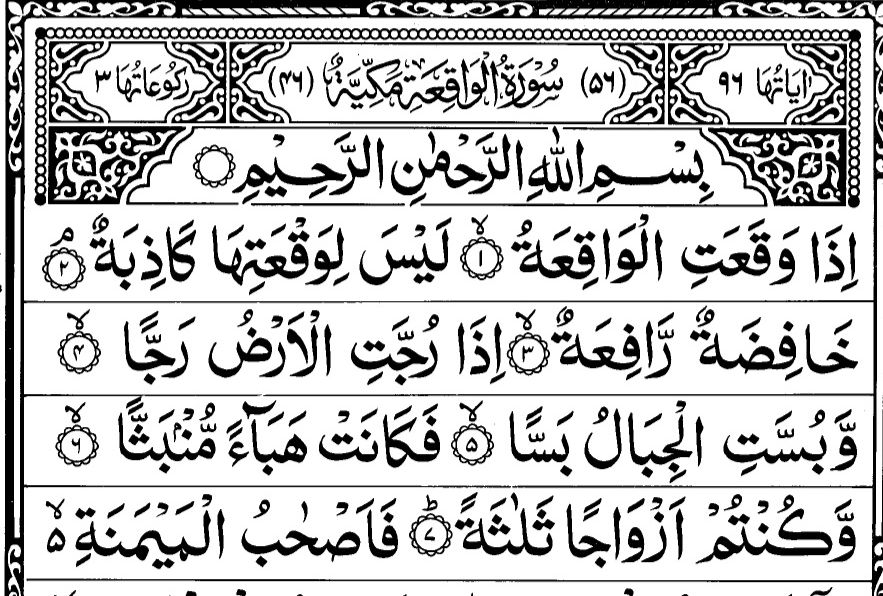 اٰيَاتُهَا ٩٦ (٥٦) سُوْرَةُ الْوَاقِعَةِ مَكِّيَّةٌ (٤٦) رُكُوْعَاتُهَا ٣
بِسْمِ اللّٰهِ الرَّحْمٰنِ الرَّحِيْمِ ۝
اِذَا وَقَعَتِ الْوَاقِعَةُ ۙ﴿١﴾ لَيْسَ لِوَقْعَتِهَا كَاذِبَةٌ ۘ﴿٢﴾
خَافِضَةٌ رَّافِعَةٌ ۙ﴿٣﴾ اِذَا رُجَّتِ الْاَرْضُ رَجًّا ۙ﴿٤﴾
وَّبُسَّتِ الْجِبَالُ بَسًّا ۙ﴿٥﴾ فَكَانَتْ هَبَآءً مُّنْۢبَثًّا ۙ﴿٦﴾
وَّكُنْتُمْ اَزْوَاجًا ثَلٰثَةً ؕ﴿٧﴾ فَاَصْحٰبُ الْمَيْمَنَةِ ۙ۵